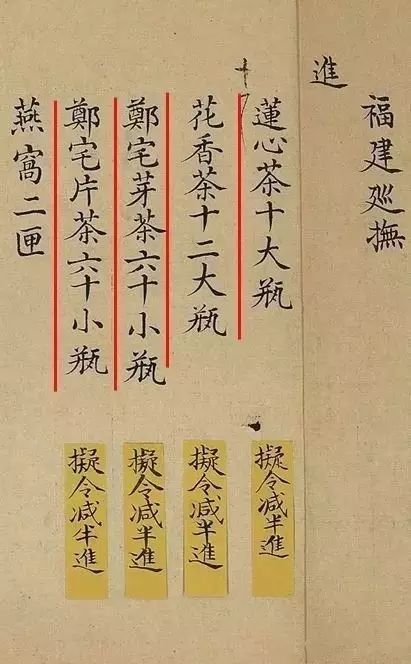 福建廵撫
進
蓮心茶十大瓶
擬令減半進
花香茶十二大瓶
擬令減半進
鄭宅芽茶六十小瓶
擬令減半進
鄭宅片茶六十小瓶
擬令減半進
燕窩二匣